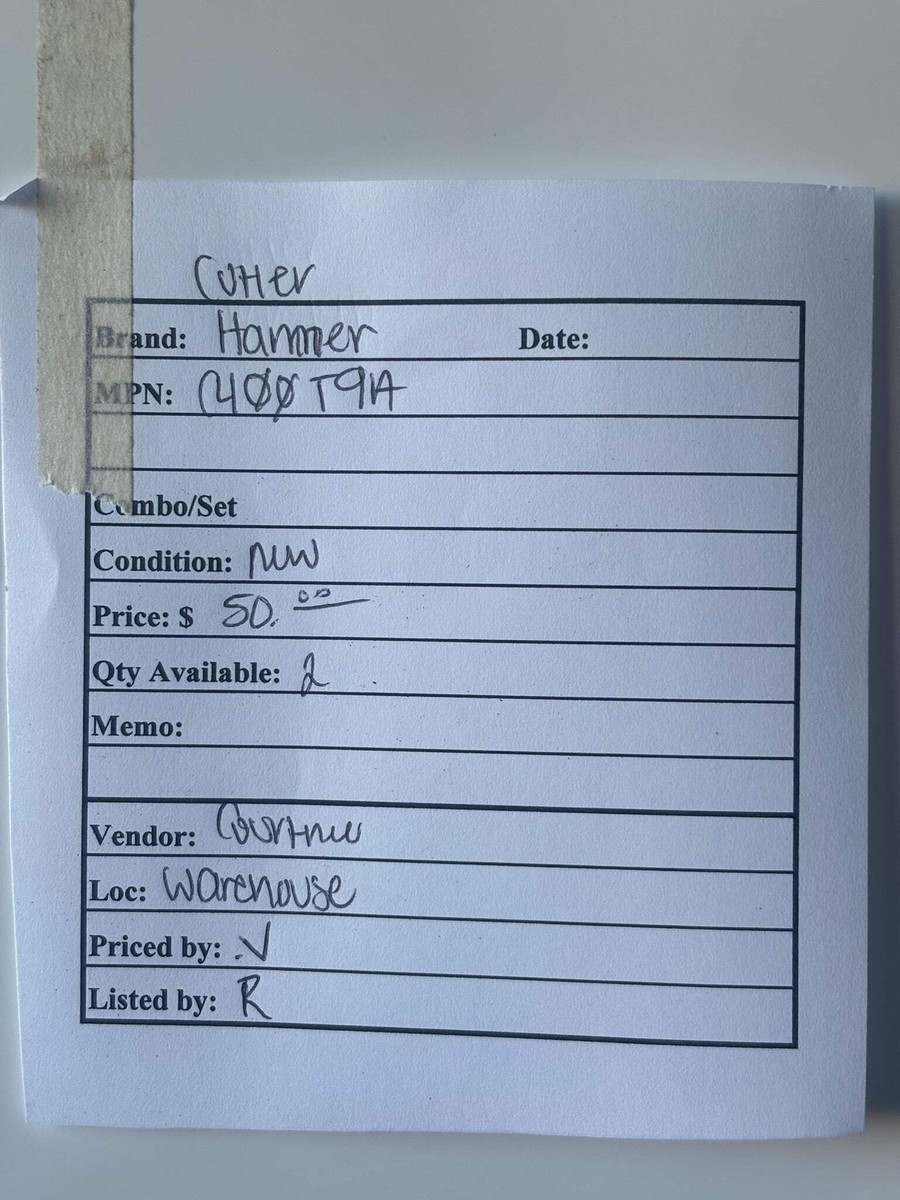 Cutler
Brand: Hammer Date:
MPN: C400T9A
Combo/Set
Condition: New
Price: $ 50.00
Qty Available: 2
Memo:
Vendor: Courtnee
Loc: Warehouse
Priced by: V
Listed by: R